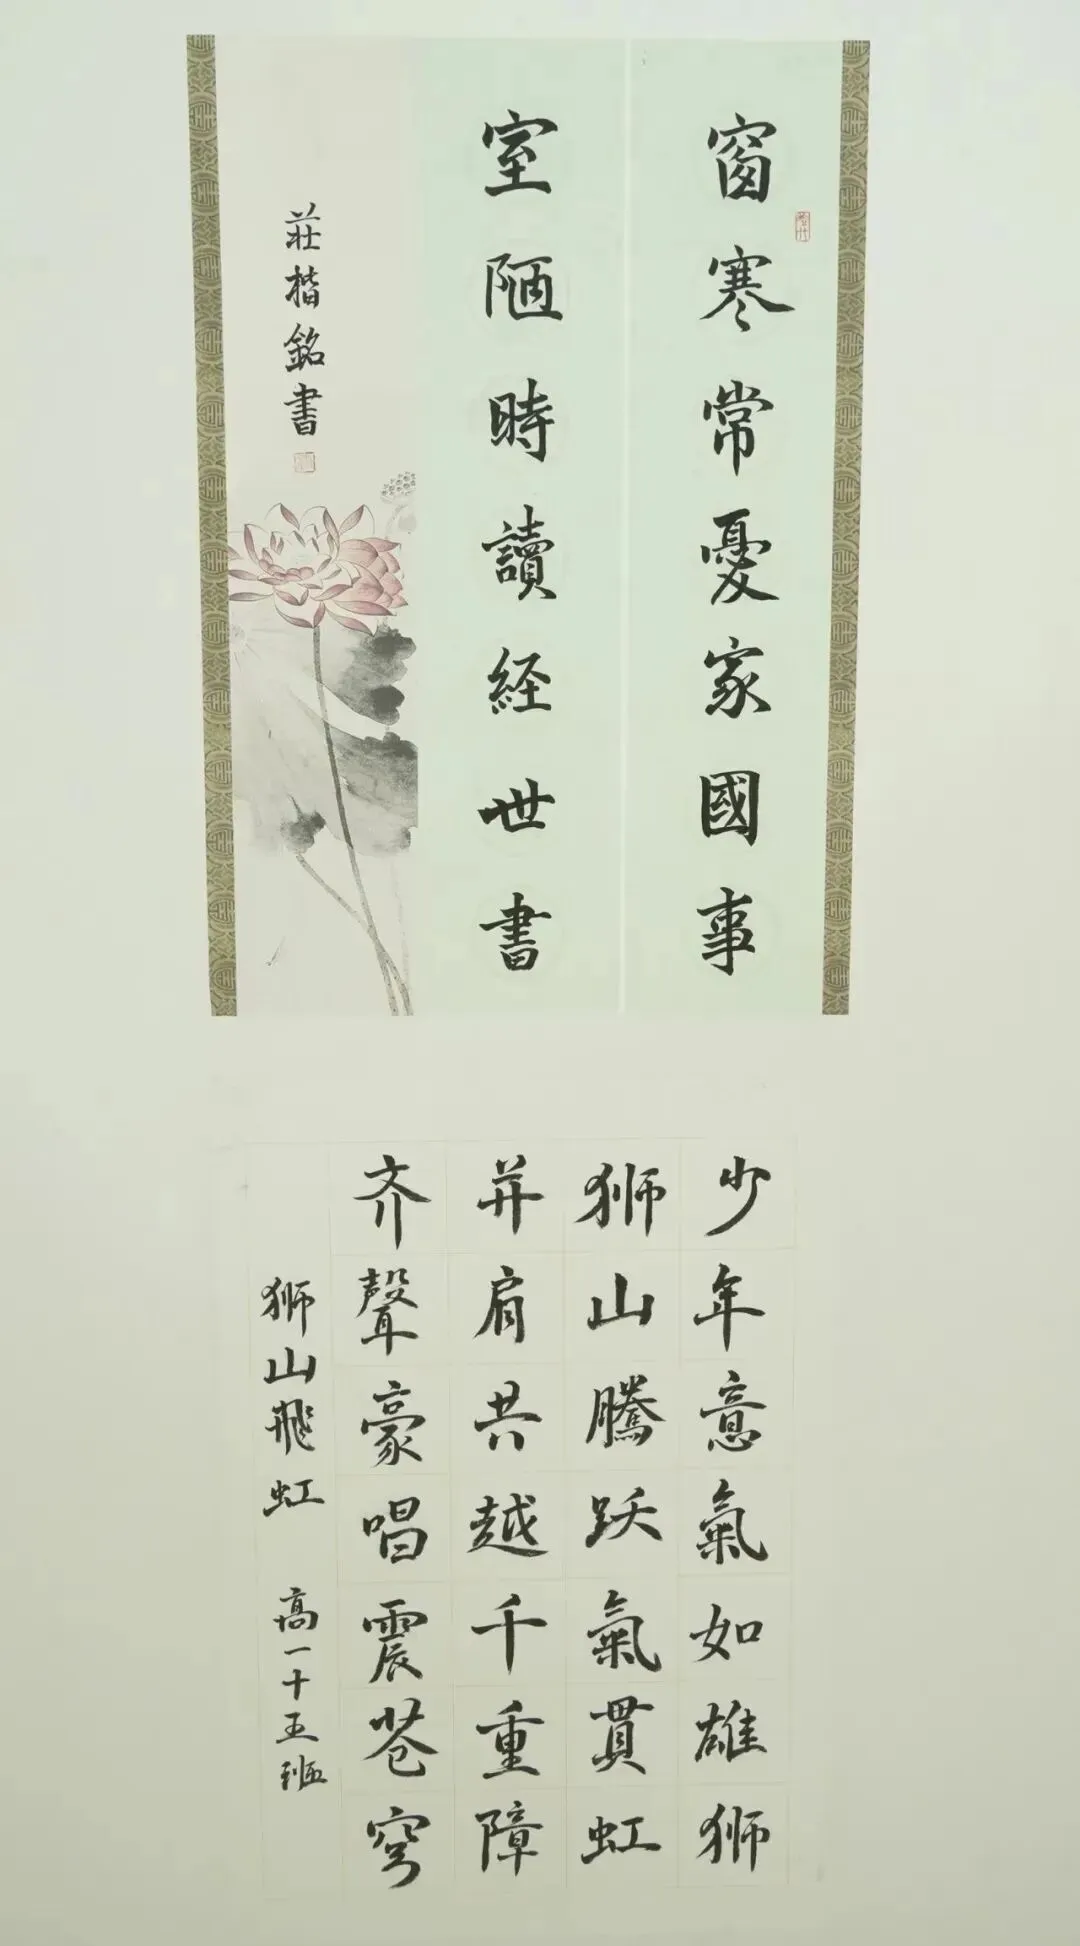 窗寒常憂家國事
室陋時讀経世書
莊楷銘書
少年意氣如雄狮
狮山騰跃氣貫虹
并肩共越千重障
齐聲豪唱震苍穹
狮山飛虹 高一十五班